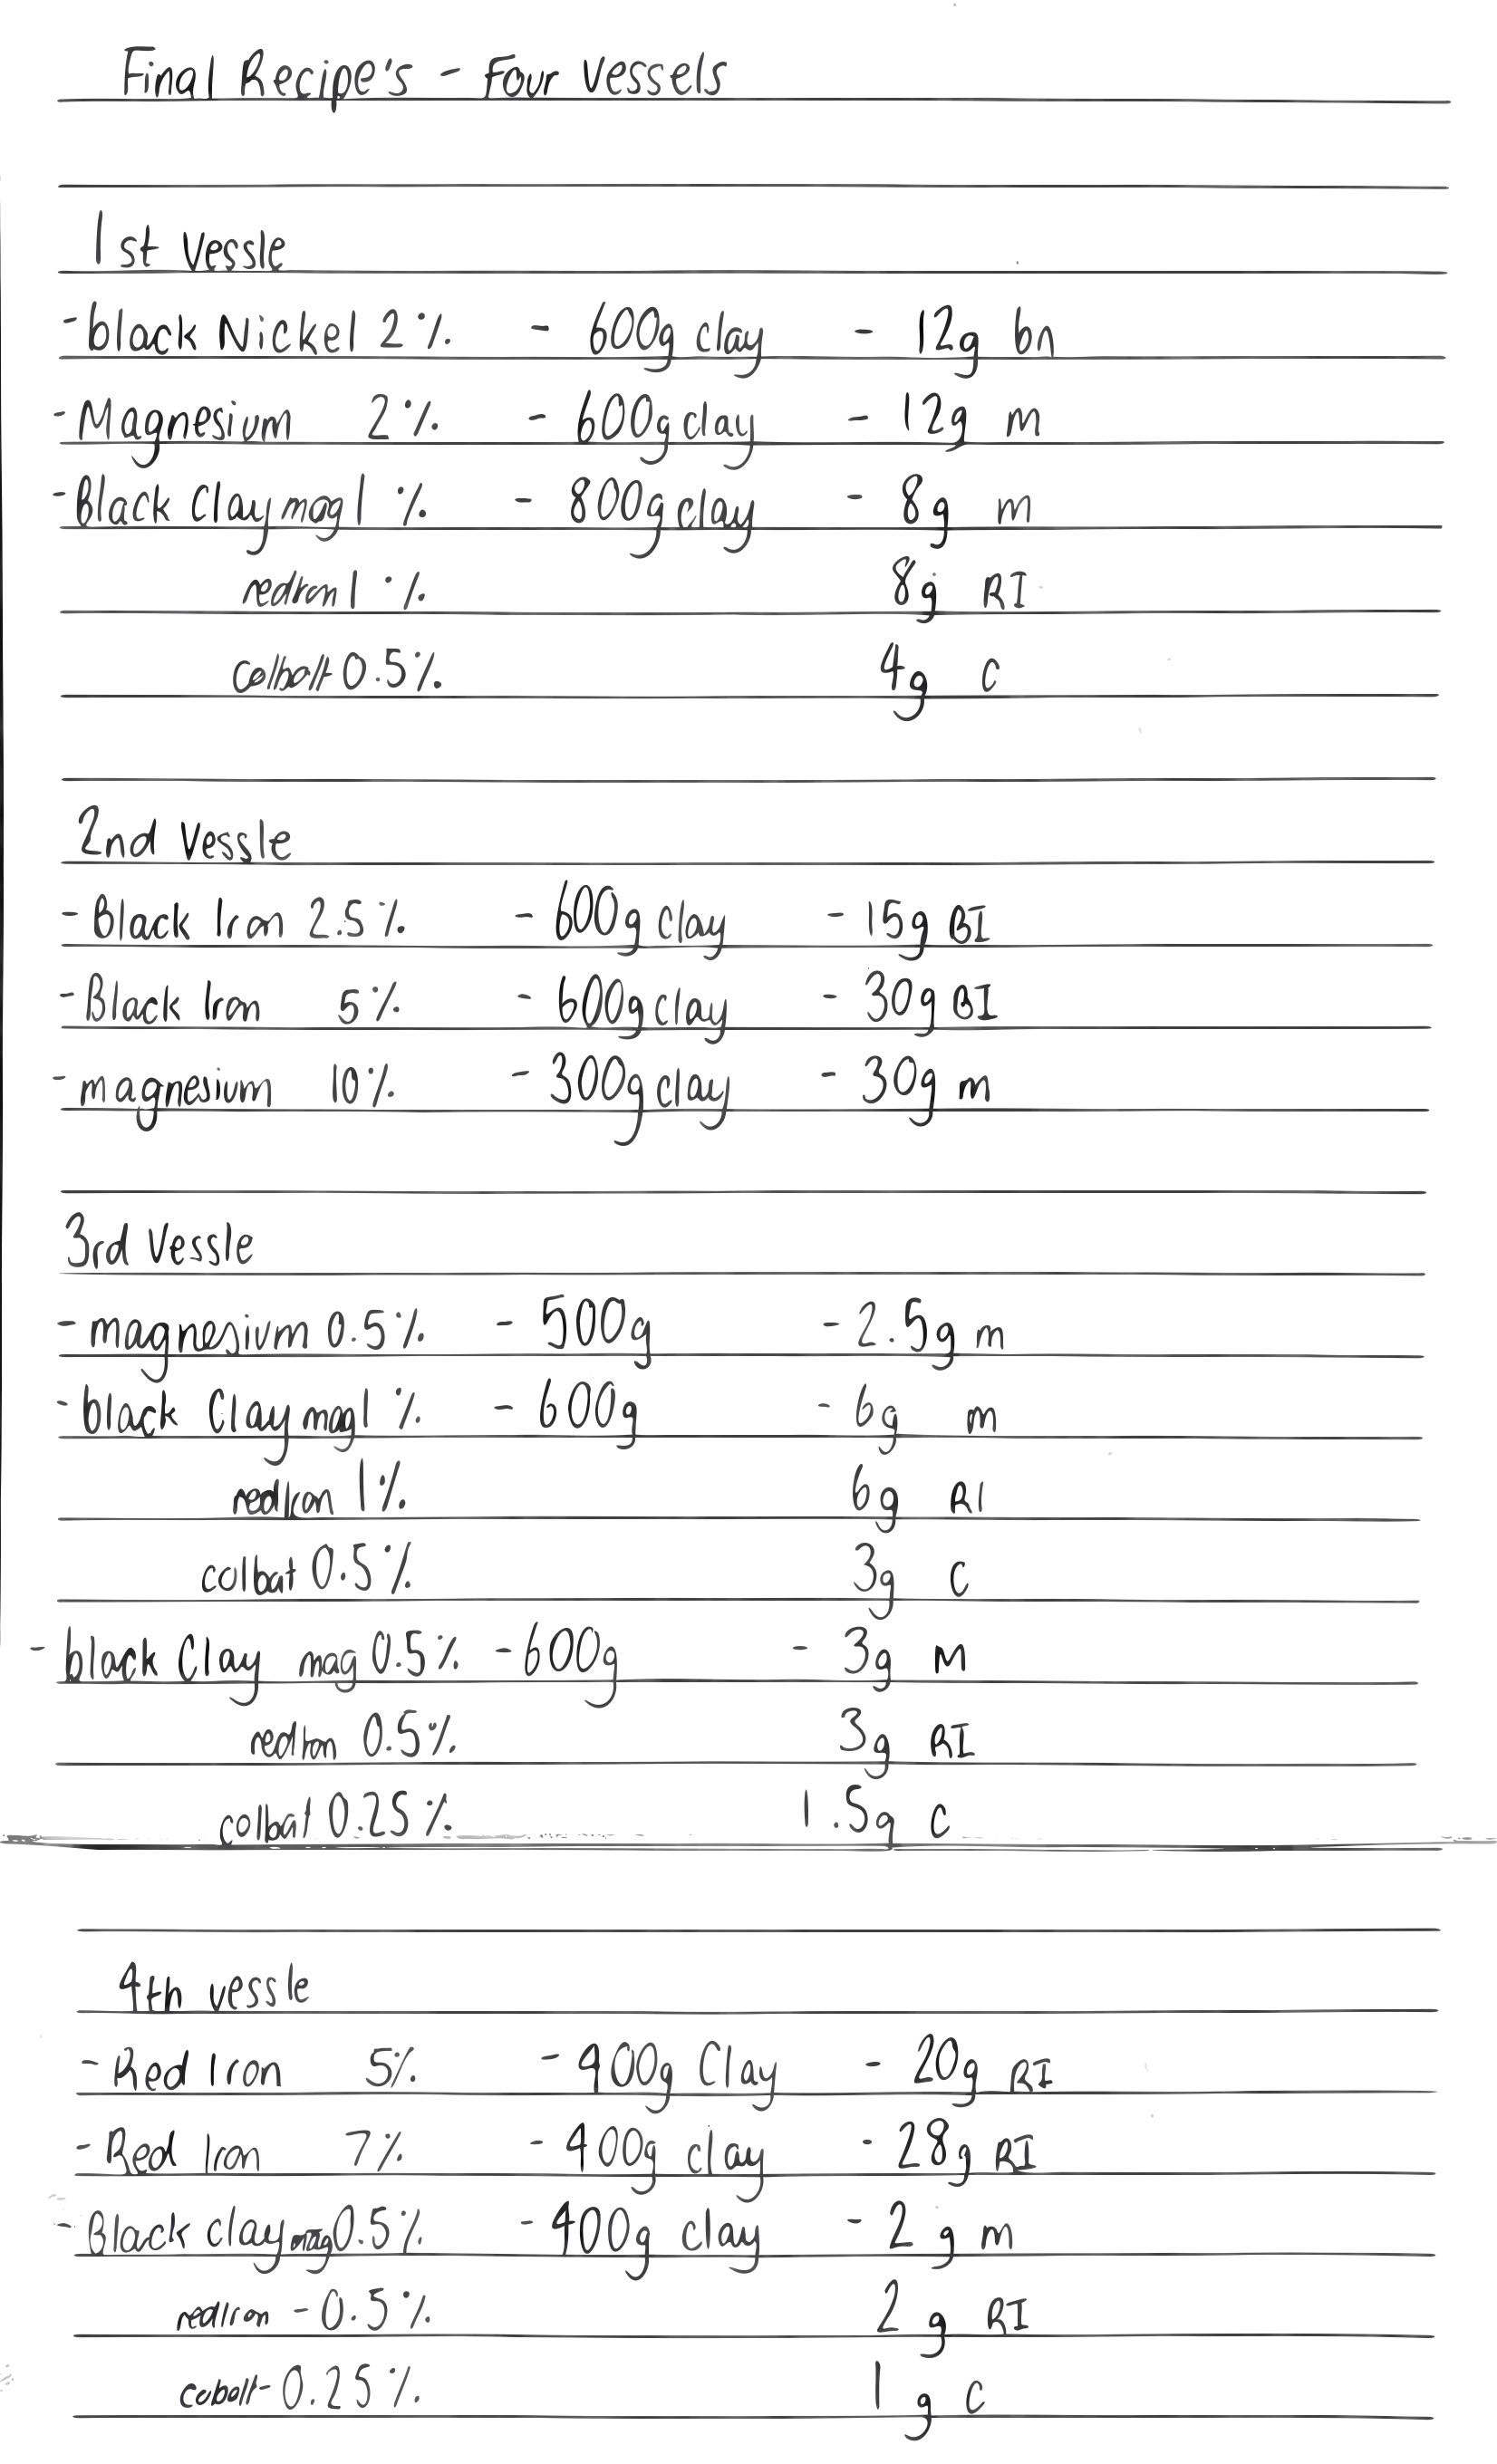 Final Recipe's - Four Vessels
1st Vessle
- black Nickel 2% - 600g clay - 12g bn
- Magnesium 2% - 600g clay - 12g m
- Black Clay mag 1% - 800g clay - 8g m
red Iron 1% 8g RI
colbolt 0.5% 4g C
2nd Vessle
- Black Iron 2.5% - 600g clay - 15g BI
- Black Iron 5% - 600g clay - 30g BI
- magnesium 10% - 300g clay - 30g m
3rd Vessle
- magnesium 0.5% - 500g - 2.5g m
- black Clay mag 1% - 600g - 6g m
red Iron 1% 6g RI
colbat 0.5% 3g C
- black Clay mag 0.5% - 600g - 3g M
red Iron 0.5% 3g RI
colbat 0.25% 1.5g C
4th vessle
- Red Iron 5% - 400g Clay - 20g RI
- Red Iron 7% - 400g clay - 28g RI
- Black clay mag 0.5% - 400g clay - 2g m
red Iron - 0.5% 2g RI
cobolt - 0.25% 1g C